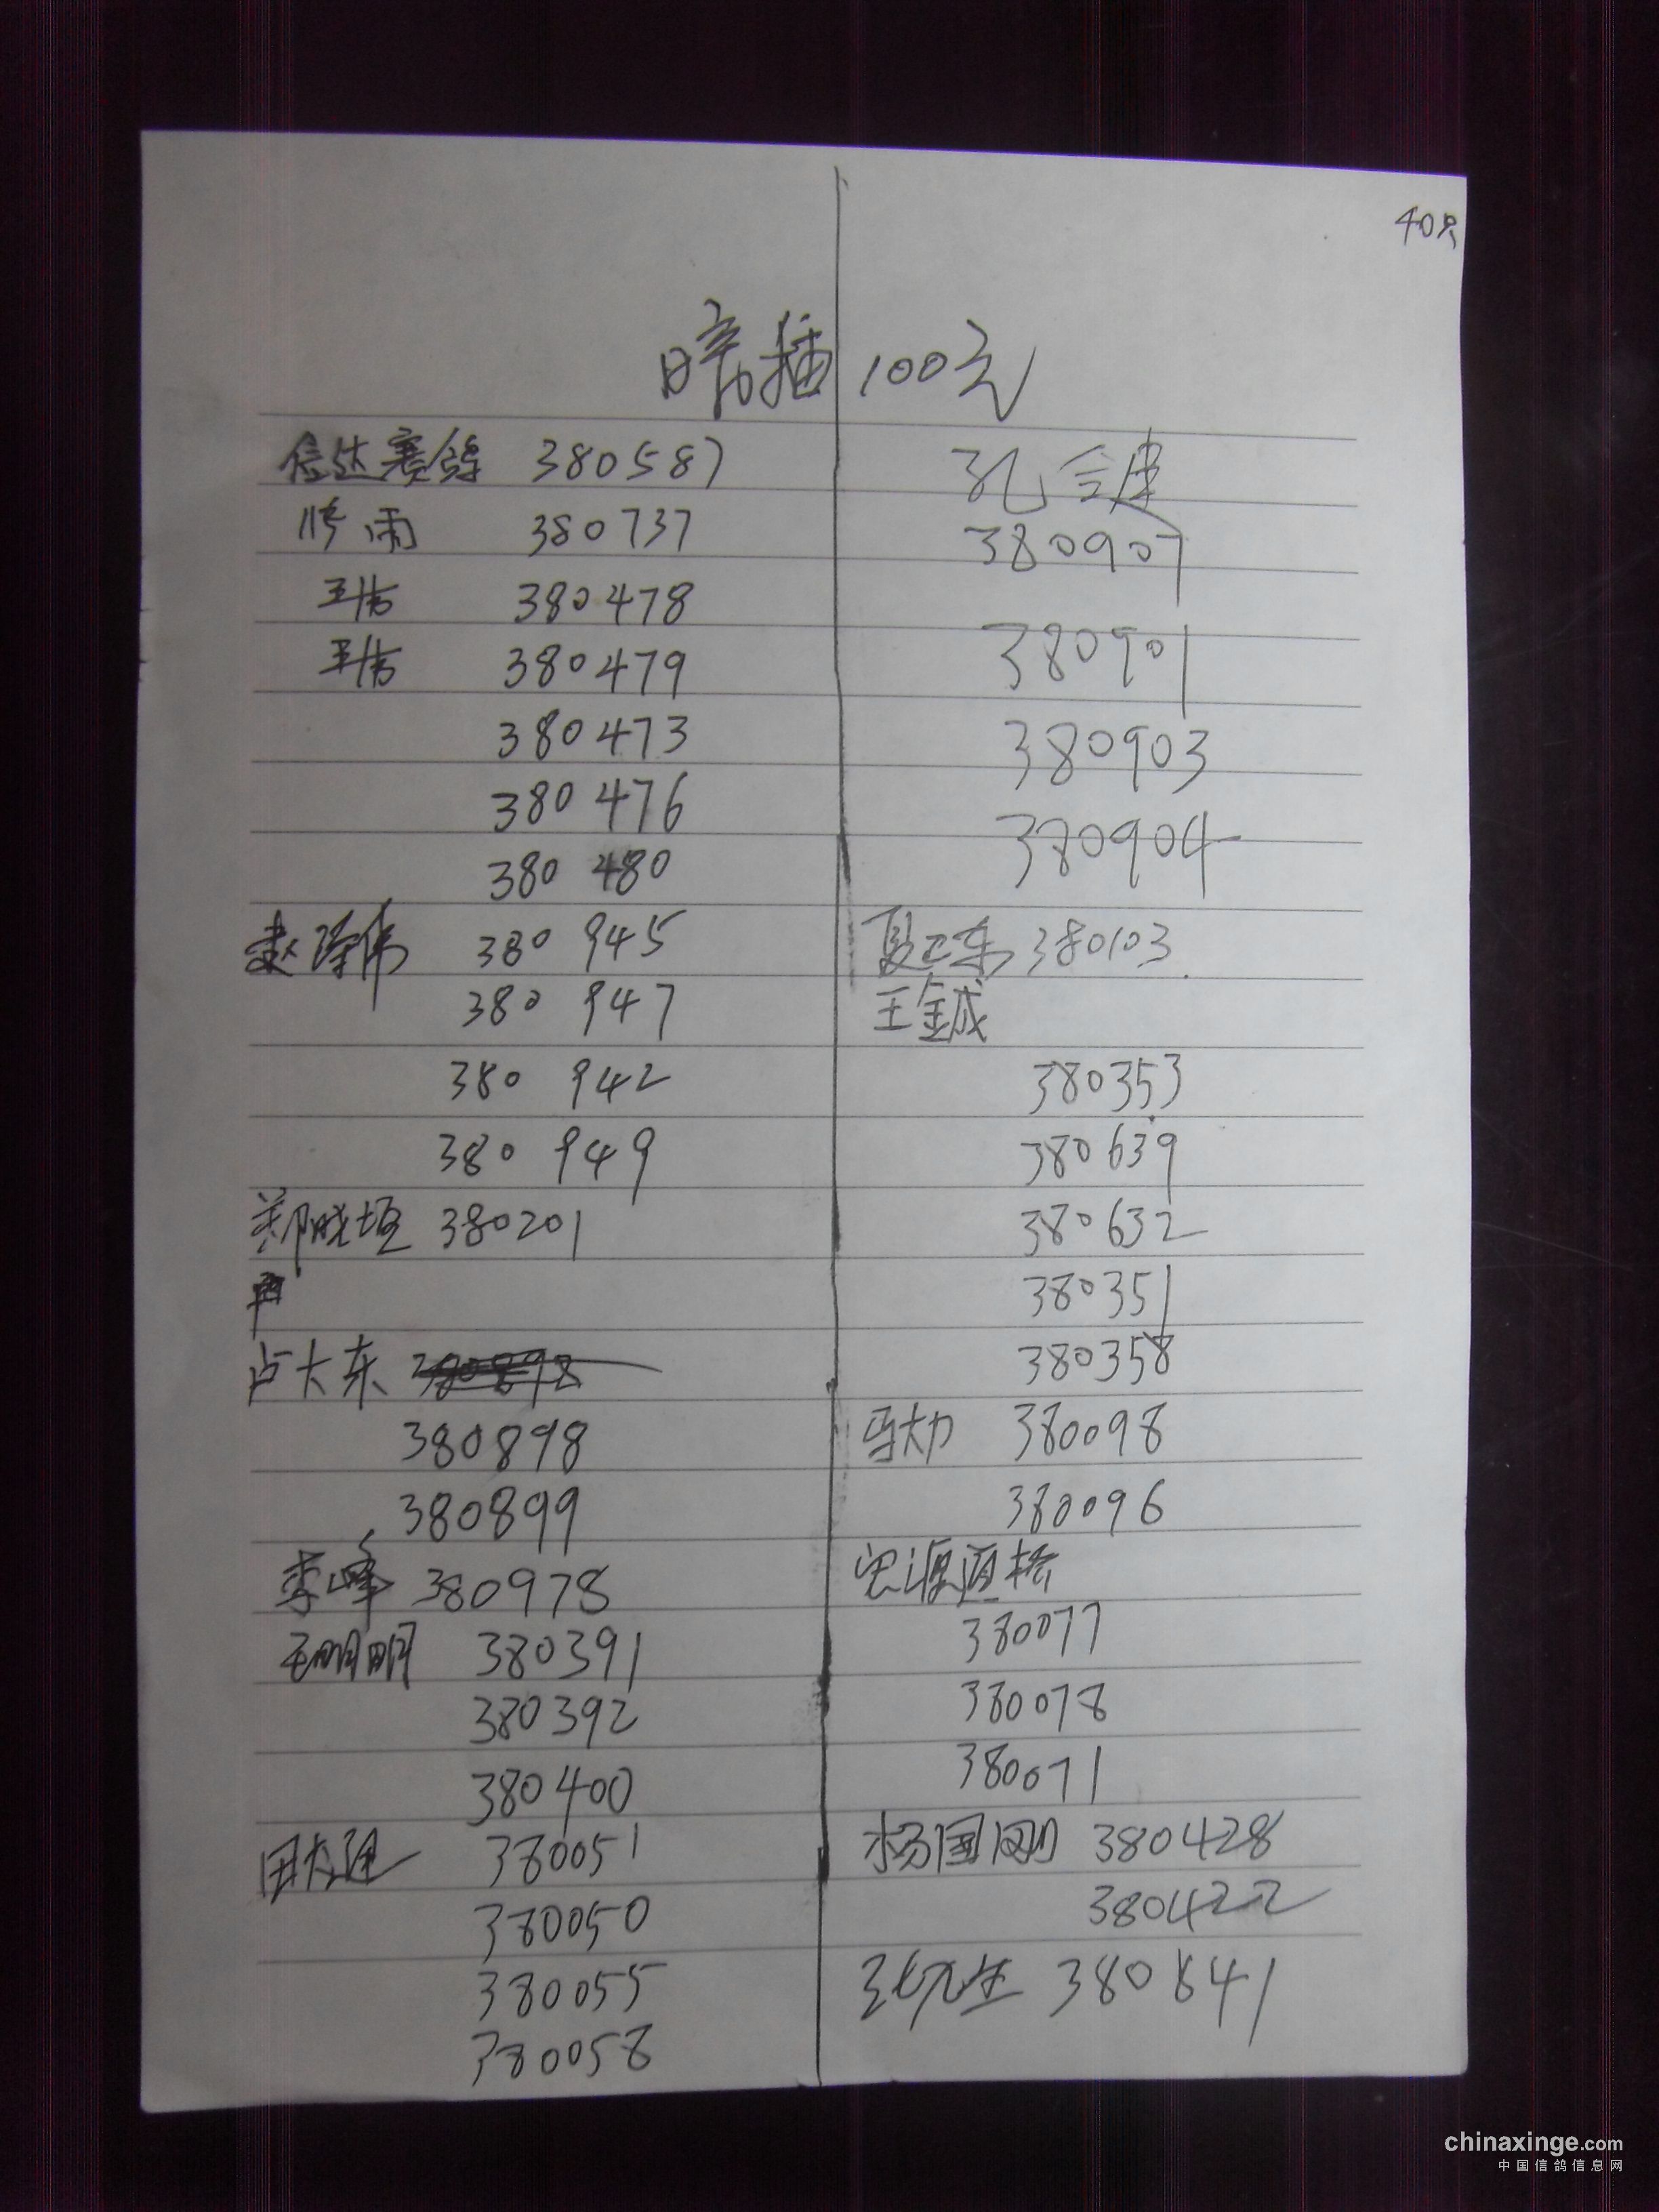 40只
暗插 100元
信达赛鸽 380587
雨 380737
王伟 380478
王伟 380479
380473
380476
380 480
赵泽伟 380 945
380 947
380 942
380 949
郑晓垣 380201
卢大东
380898
380899
李峰 380978
王明明 380391
380392
380400
田 380051
380050
380055
380058
孔令建
380907
380901
380903
380904
夏卫东 380103
王金成
380353
380639
380632
380351
380358
马大力 380098
380096
思源通桥
380077
380078
380071
杨国刚 380428
380422
孔先生 380841
chinaxinge.com
中国信鸽信息网